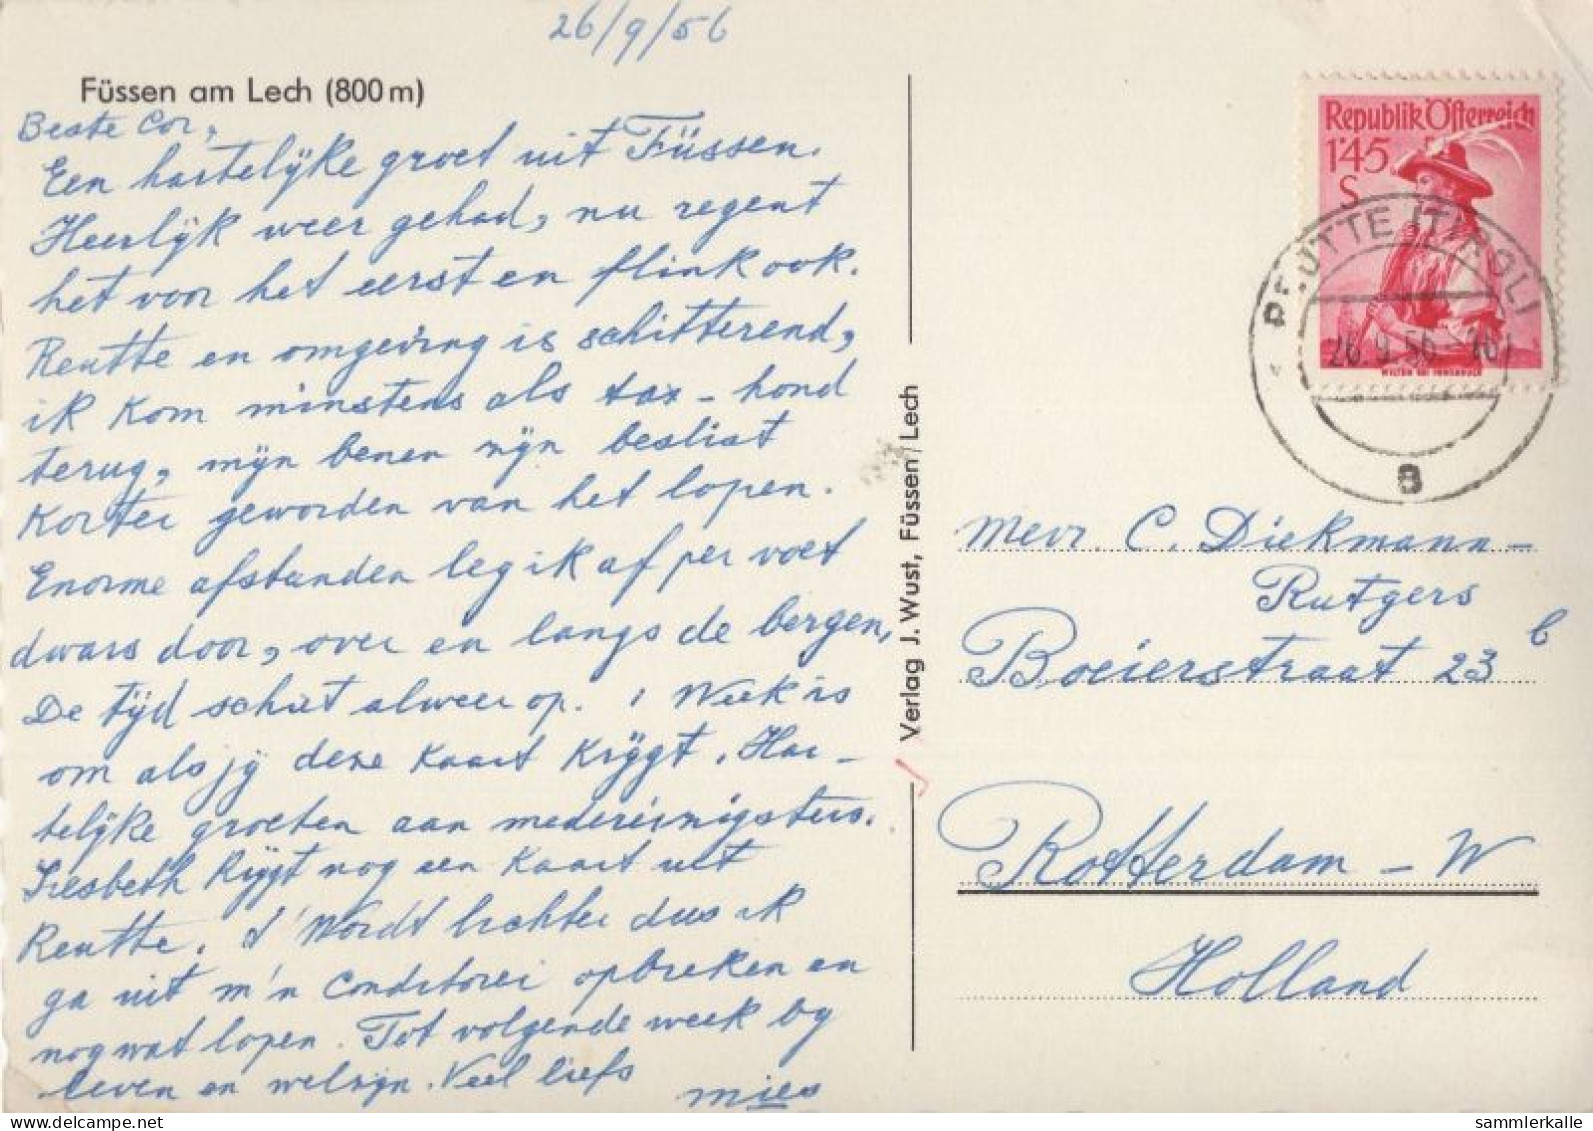 26/9/56
Füssen am Lech (800 m)
Beste Cor,
Een hartelijke groet uit Füssen.
Heerlijk weer gehad, nu regent
het voor het eerst en flink ook.
Reutte en omgeving is schitterend,
ik kom minstens als tax-hond
terug, mijn benen zijn beslist
korter geworden van het lopen.
Enorme afstanden leg ik af per voet
dwars door, over en langs de bergen,
De tijd schiet alweer op. 1 Week is
om als jij deze kaart krijgt. Har-
telijke groeten aan medereizigsters.
Liesbeth krijgt nog een kaart uit
Reutte. 't Wordt lichter dus ik
ga uit m'n Conditorei opbreken en
nog wat lopen. Tot volgende week bij
leven en welzijn. Veel liefs
Mies
Verlag J. Wust, Füssen/Lech
Republik Österreich
1'45
S
WILTEN BEI INNSBRUCK
REUTTE (TIROL)
26.9.56
a
Mevr. C. Diekmann-
Rutgers
Boeierstraat 23 b
Rotterdam - W
Holland
delcampe.net
sammlerkalle